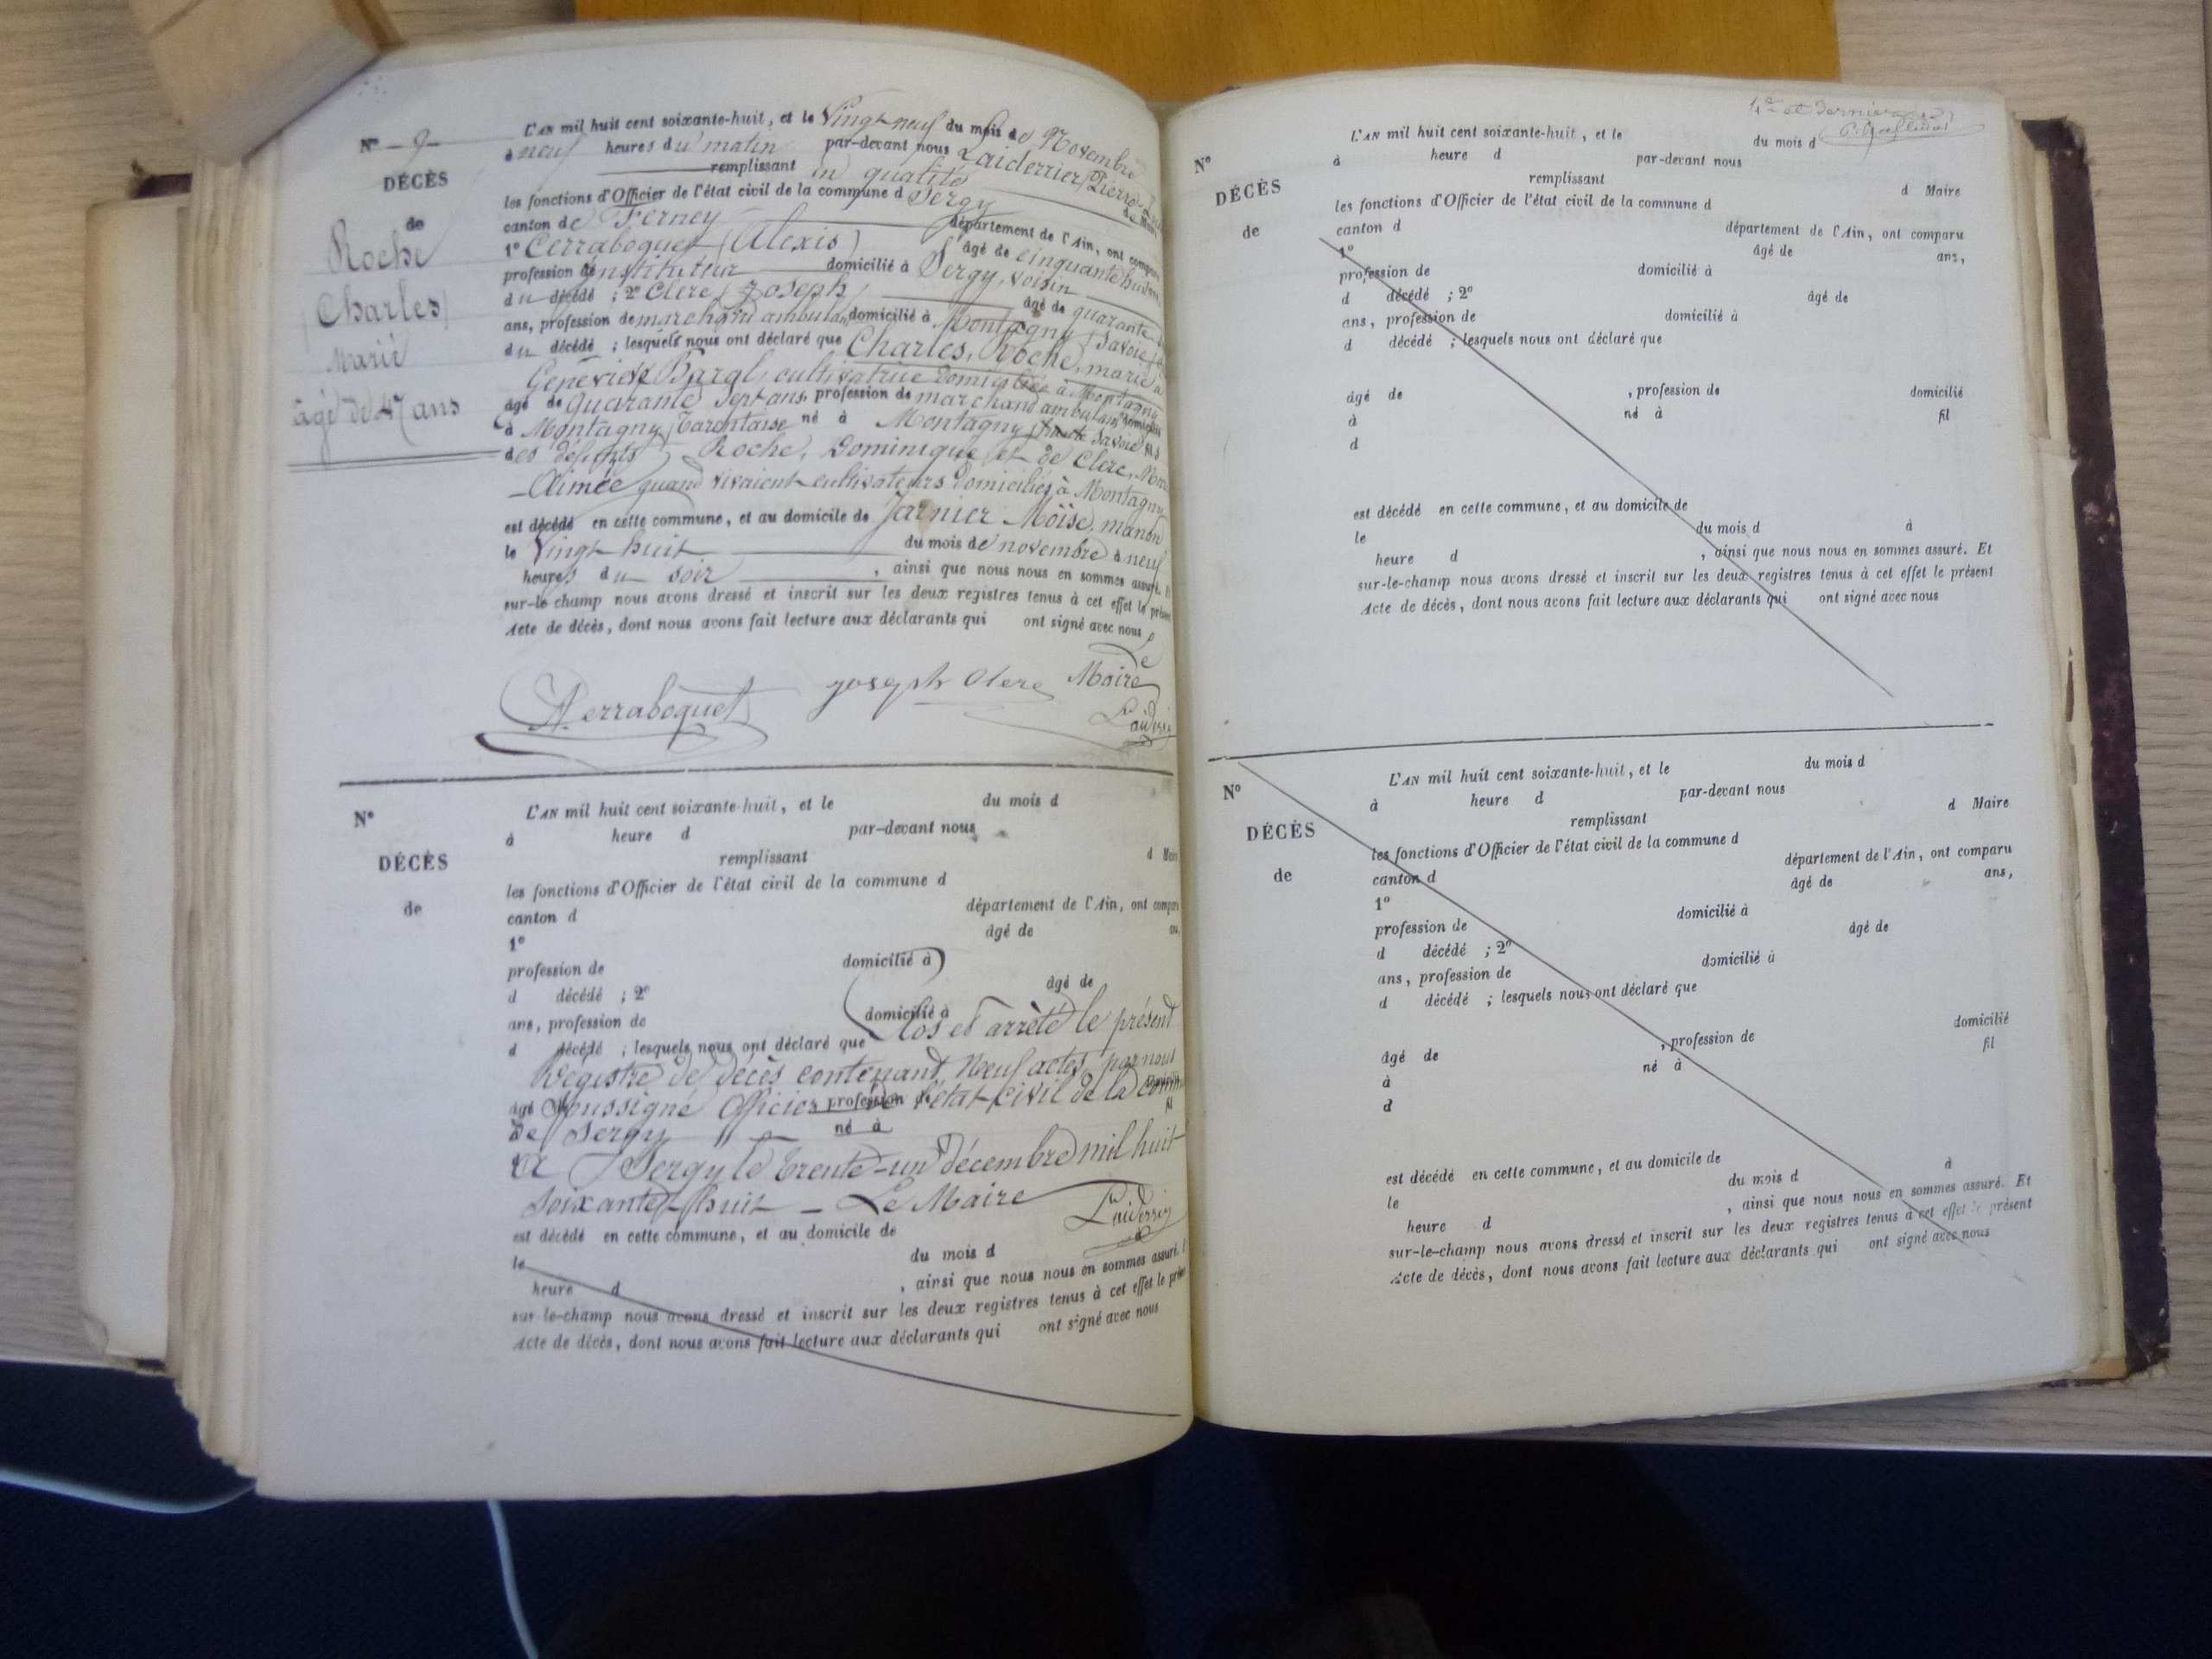 N° 9
DÉCÈS
de
Roche
Charles
Marié
âgé de 47 ans
L'AN mil huit cent soixante-huit, et le Vingt-neuf du mois de Novembre
à neuf heures du matin par-devant nous Laiderrier, Pierre
remplissant en qualité de Maire
les fonctions d'Officier de l'état civil de la commune d Sergy
canton de Ferney département de l'Ain, ont comparu
1° Cerraboquet (Alexis) âgé de cinquante huit ans
profession d'instituteur domicilié à Sergy, voisin
du décédé ; 2° Clerc, Joseph, âgé de quarante
ans, profession de marchand ambulant domicilié à Montagny (Savoie)
du décédé ; lesquels nous ont déclaré que Charles, Roche, marié à
Geneviève cultivatrice domiciliée à Montagny
âgé de Quarante Sept ans, profession de marchand ambulant domicilié
à Montagny, Tarentaise né à Montagny Savoie fils
des défunts Roche, Dominique et de Clerc,
Aimée quand vivaient cultivateurs domiciliés à Montagny
est décédé en cette commune, et au domicile de Jarnier Moïse, manon
le Vingt-huit du mois de novembre à neuf
heures du soir , ainsi que nous nous en sommes assuré.
sur-le-champ nous avons dressé et inscrit sur les deux registres tenus à cet effet le présent
Acte de décès, dont nous avons fait lecture aux déclarants qui ont signé avec nous
Le
Maire
joseph Clerc
Laiderrier
N°
DÉCÈS
de
L'AN mil huit cent soixante-huit, et le du mois d
à heure d par-devant nous
remplissant d Maire
les fonctions d'Officier de l'état civil de la commune d
canton d département de l'Ain, ont comparu
1° âgé de
profession de domicilié à
d décédé ; 2° âgé de
ans, profession de domicilié à
Clos et arrêté le présent
d décédé ; lesquels nous ont déclaré que
Registre de décès contenant Neuf actes, par nous
âgé profession de
soussigné Officier de l'état-civil de la
né à fil
de Sergy
A Sergy le trente-un décembre mil huit
soixante-huit - Le Maire Laiderrier
est décédé en cette commune, et au domicile de
le du mois d
heure d , ainsi que nous nous en sommes assuré.
sur-le-champ nous avons dressé et inscrit sur les deux registres tenus à cet effet le présent
Acte de décès, dont nous avons fait lecture aux déclarants qui ont signé avec nous
4e et dernier
N°
DÉCÈS
de
L'AN mil huit cent soixante-huit, et le du mois d
à heure d par-devant nous
remplissant d Maire
les fonctions d'Officier de l'état civil de la commune d
canton d département de l'Ain, ont comparu
1° âgé de ans,
profession de domicilié à
d décédé ; 2° âgé de
ans, profession de domicilié à
d décédé ; lesquels nous ont déclaré que
âgé de , profession de domicilié
à né à fil
d
est décédé en cette commune, et au domicile de
le du mois d à
heure d , ainsi que nous nous en sommes assuré. Et
sur-le-champ nous avons dressé et inscrit sur les deux registres tenus à cet effet le présent
Acte de décès, dont nous avons fait lecture aux déclarants qui ont signé avec nous
N°
DÉCÈS
de
L'AN mil huit cent soixante-huit, et le du mois d
à heure d par-devant nous
remplissant d Maire
les fonctions d'Officier de l'état civil de la commune d
canton d département de l'Ain, ont comparu
1° âgé de ans,
profession de domicilié à
d décédé ; 2° âgé de
ans, profession de domicilié à
d décédé ; lesquels nous ont déclaré que
âgé de , profession de domicilié
à né à fil
d
est décédé en cette commune, et au domicile de
le du mois d à
heure d , ainsi que nous nous en sommes assuré. Et
sur-le-champ nous avons dressé et inscrit sur les deux registres tenus à cet effet le présent
Acte de décès, dont nous avons fait lecture aux déclarants qui ont signé avec nous